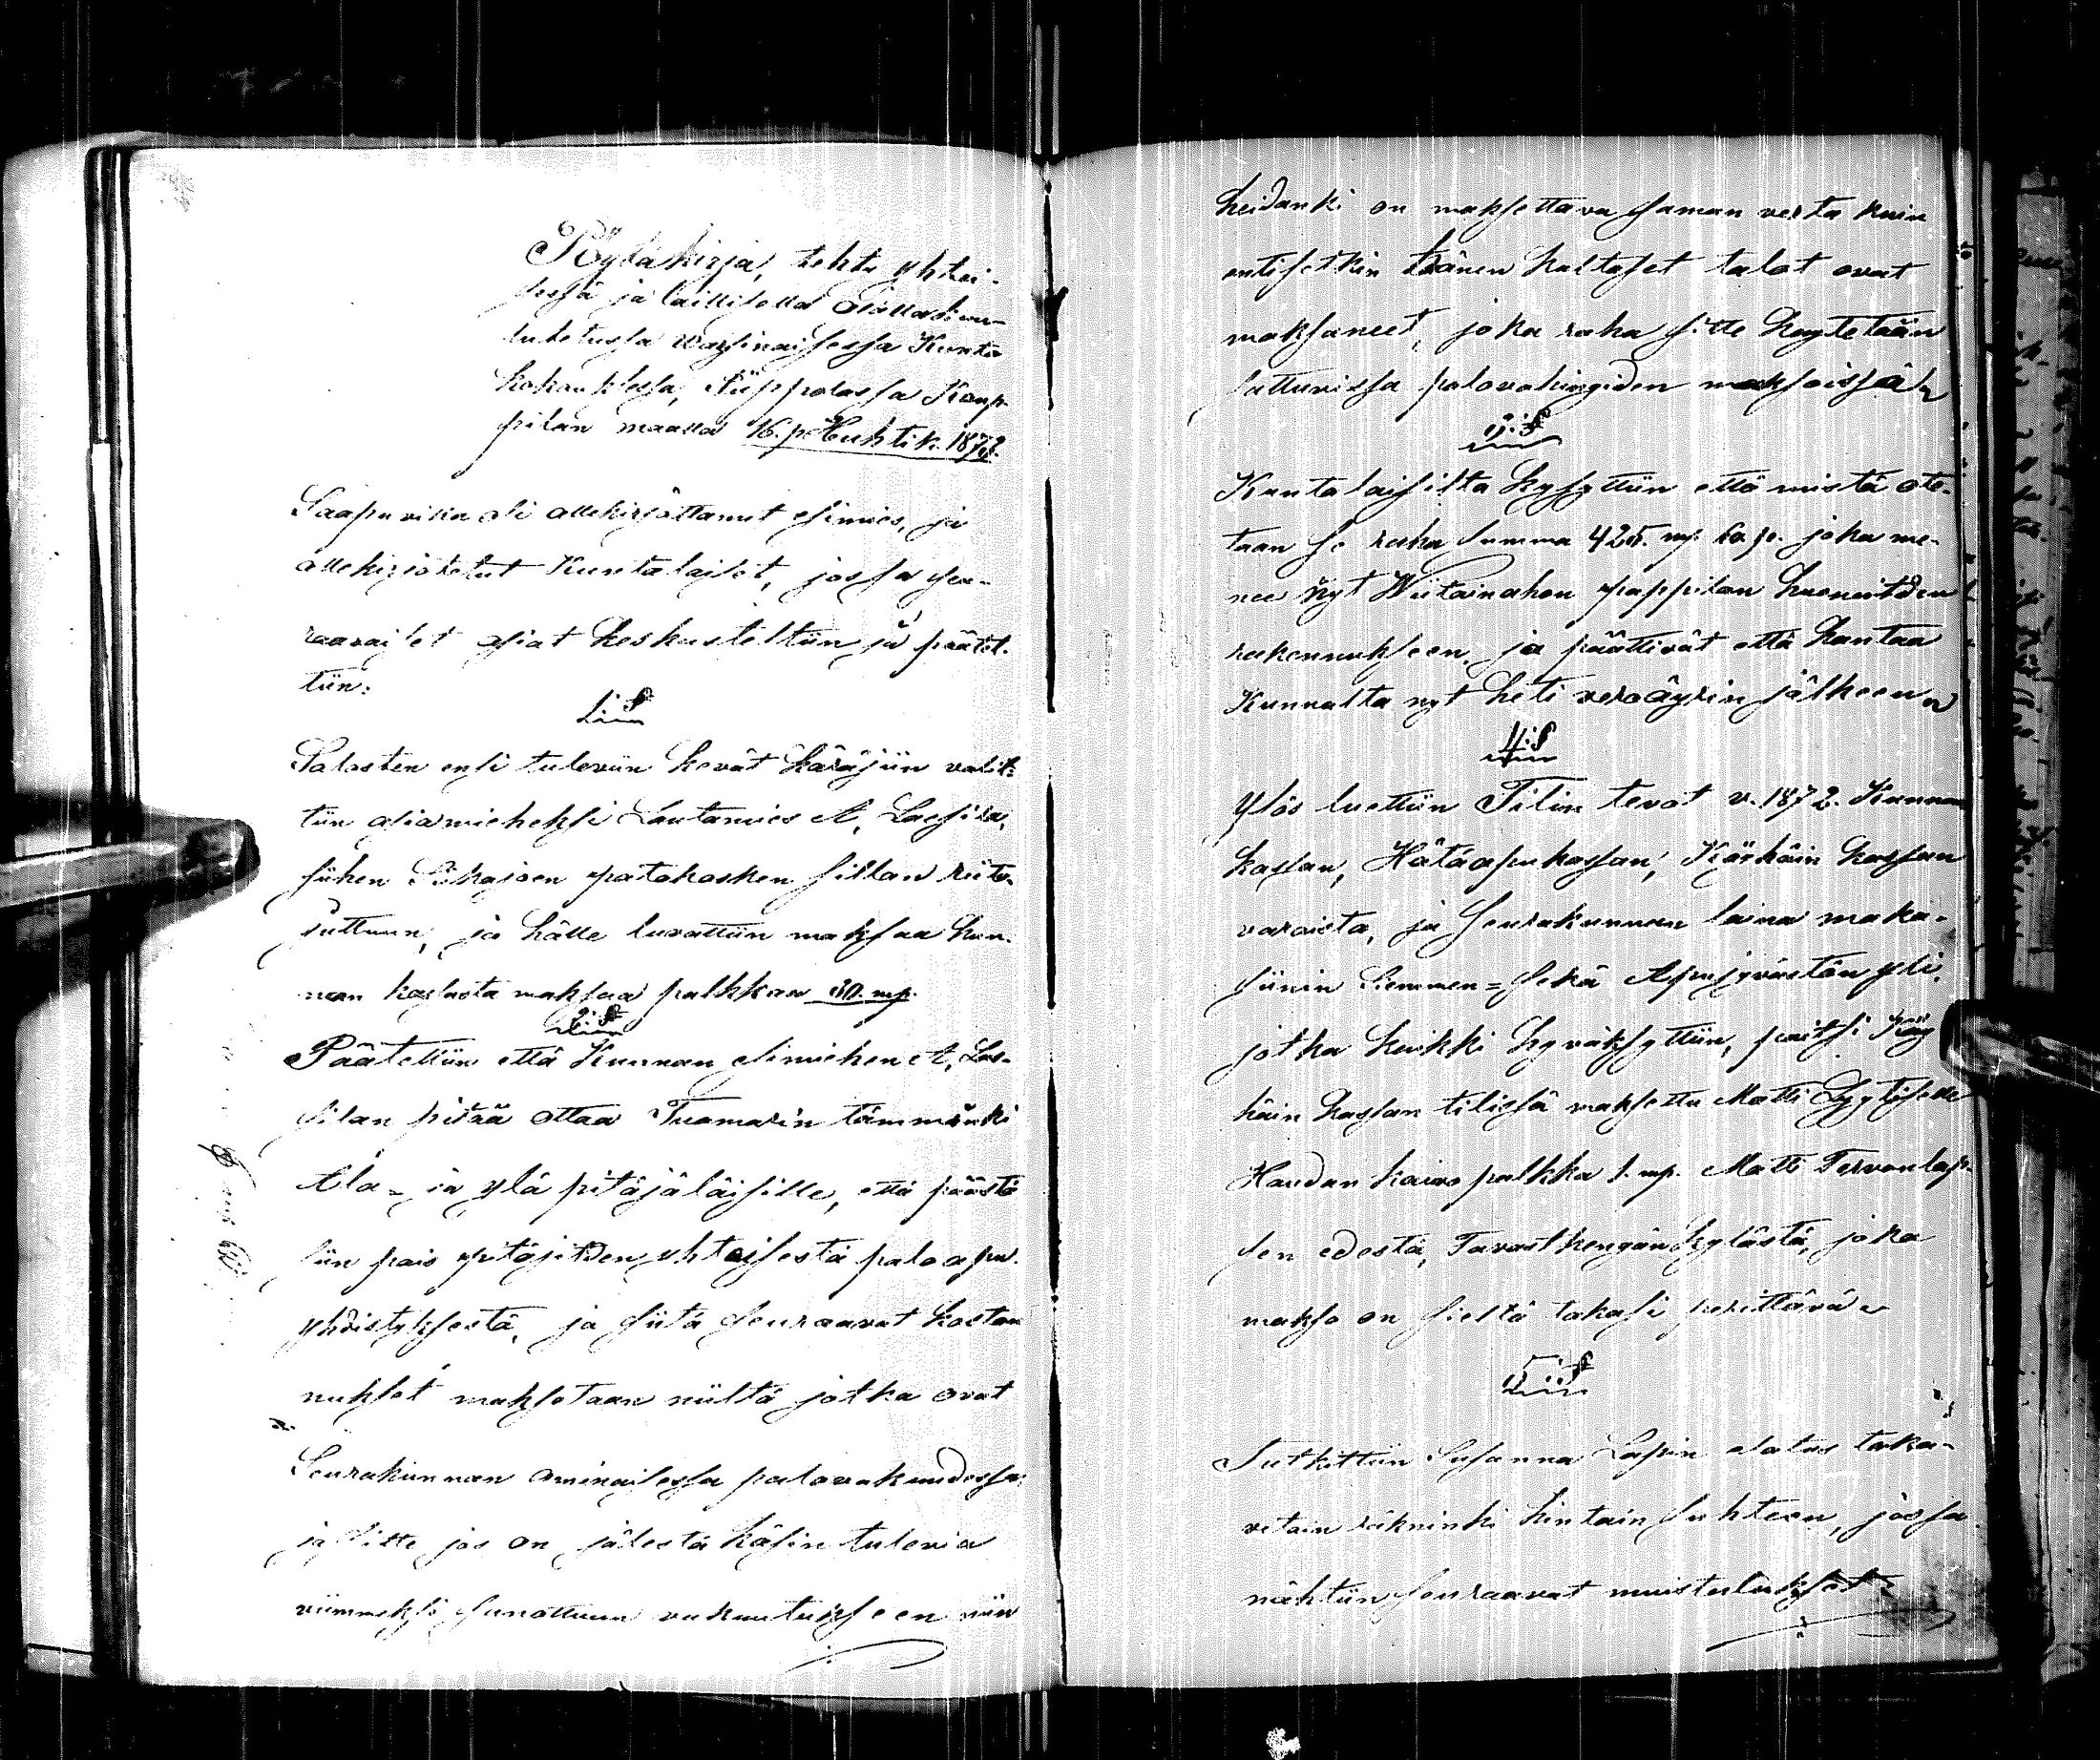 Pöytäkirja, tehty yhtei-
sessä ja laillisella
luketussa warsinaisessa Kunta
kokouksessa, Piippolassa Kaup-
pilan maalla 16. p. Huhtik. 1873.
Saapuvilla oli allekirjottanut esimies, ja
allekirjotetut Kuntalaiset, jossa seu-
raavaiset asiat keskusteltiin ja päätet-
tiin:
1. §
Talosten ensi tuleviin kevät käräjiin valit-
tiin asiamieheksi Lautamies A. Lassila,
siihen Siikajoen patokosken sillan riita-
juttuun, ja hälle luvattiin maksaa kun-
nan kassasta maksaa palkkaa 30. mp.
2. §
Päätettiin että Kunnan esimiehen A. Las-
silan pitää ottaa Tuomarin tämmönki
Ala- ja ylä pitäjäläisille, että päästä
siin pois pitäjitden yhteisestä paloapu-
yhdistyksestä, ja siitä seuraavat kostan
nukset maksetaan niiltä jotka ovat
Seurakunnan ominaisessa palovakuudessa
ja sitte jos on jälestä käsin tulevia
viimmeksi sanottuun vakuutukseen niin
heidänki on maksettava saman verta kuin
entisetkin tämän kaltaset talot ovat
maksaneet, joka raha sitte käytetään
sattuvissa palovahingoiden maksoissa
3. §
Kuntalaisilta kysyttiin että mistä ote-
taan se raha summa 425. mp. joka me-
nee nyt Wiitainahon pappilan huoneitden
rakennukseen, ja päättivät että kantaa
Kunnalta nyt heti veroäyrin jälkeen
4. §
Ylös luettiin Tilin tevot v. 1872. Kunnan
kassan, Hätäapukassan, Käyhäin kassan
varoista, ja Seurakunnan laina maka-
siinin Siemmen= sekä Apujyvästön yli.
jotka kaikki hyväksyttiin, paitsi Käy
häin kassan tilissä maksettu Matti Lyytiselle
Haudan kaivo palkka 1. mp. Matti Tervon lap-
sen edestä, Tavastkengän kylästä, joka
makso on sieltä takasi perittävä
5. §
Tutkittiin Susanna Lapin elatus taka-
vetoin räkninki hintain suhteen, jossa
nähtiin seuraavat muistutukset